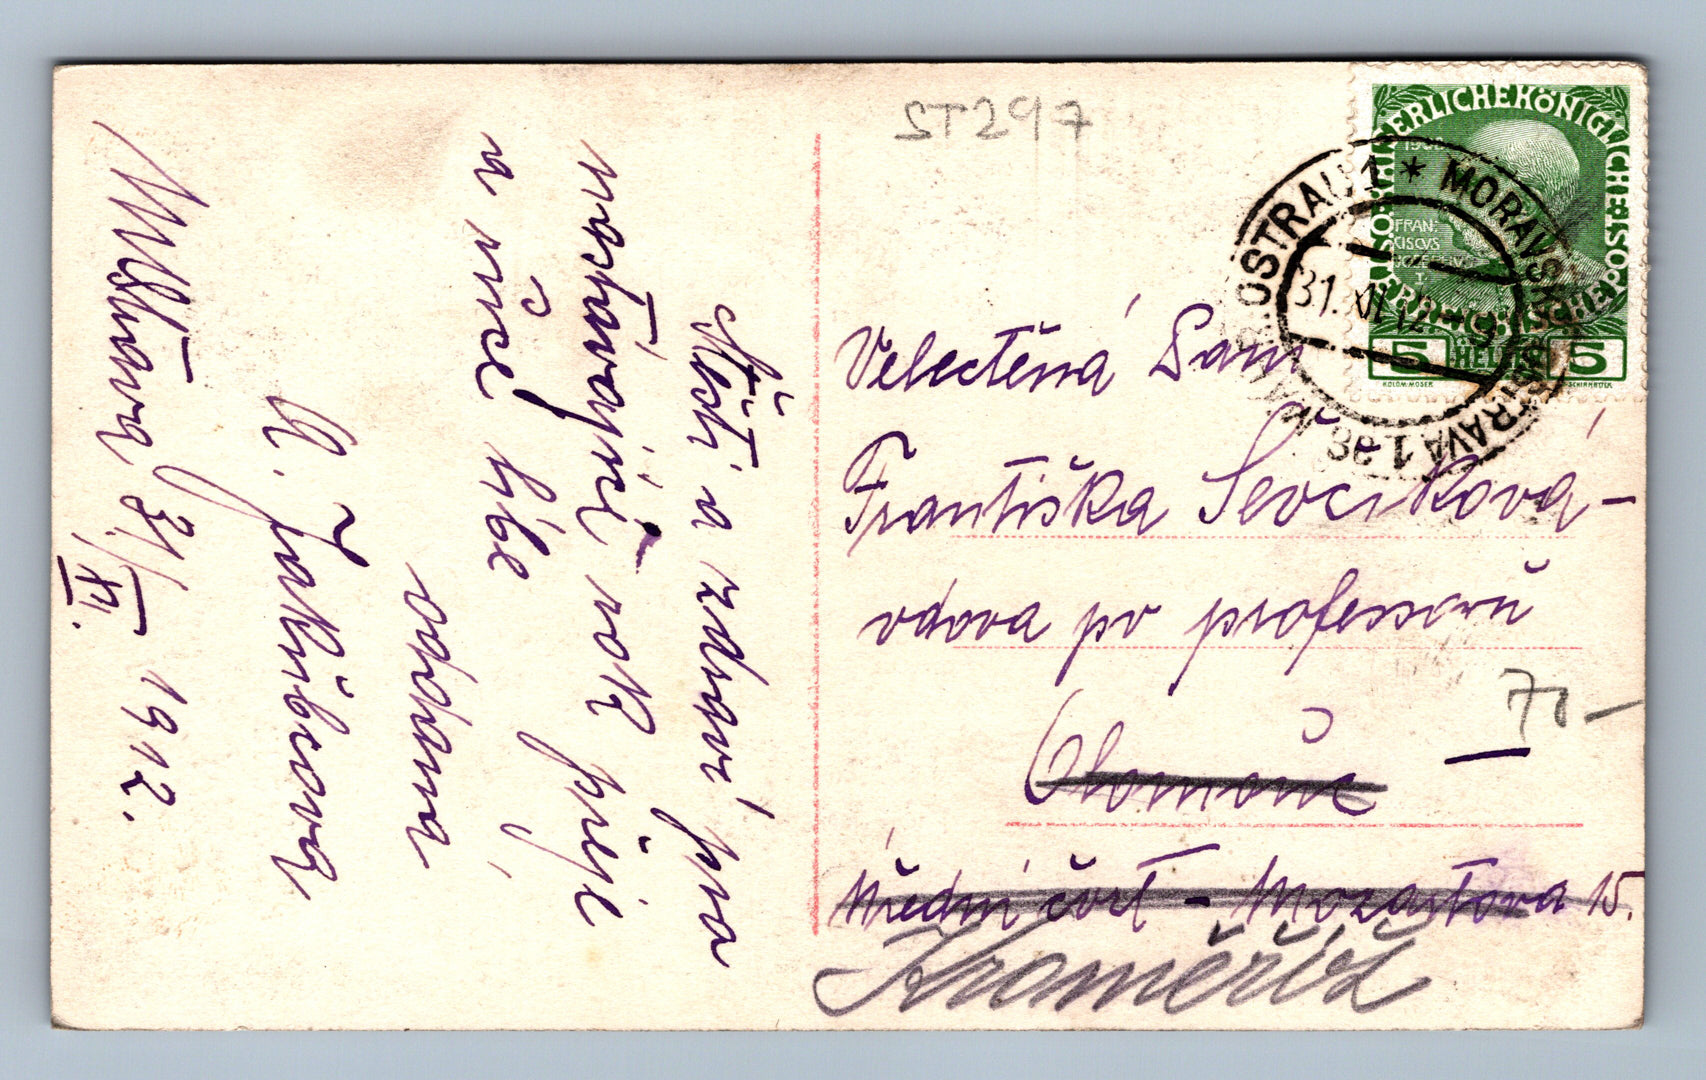 ST297
KAISERLICHEKÖNIGLICHE ÖSTERREICHISCHE POST
1908
FRAN-
CISCVS
IOSEPHVS
I
5 HELLER 5
KOLOM.MOSER SCHIRNBÖCK
MÄHR. OSTRAU 1 * MORAVSKÁ OSTRAVA 1
31.XII.12-9
3e
Velectěná Paní
Františka Ševčíková -
vdova po professorů
Olomouc
Úřední čvrť - Mozartova 15.
Kroměříž
70-
Štěstí a zdraví pro
nastávající rok přeje
a ruce líbe
oddaná
A. Jakubcová
31/XII. 1912.